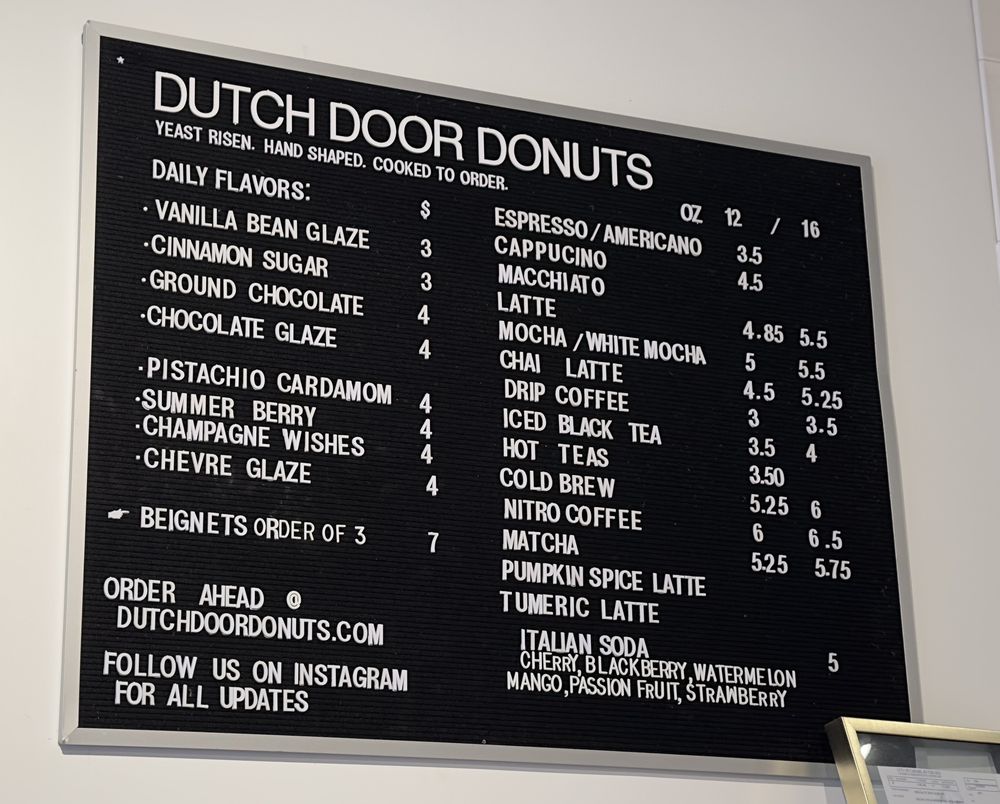 DUTCH DOOR DONUTS
YEAST RISEN. HAND SHAPED. COOKED TO ORDER.
DAILY FLAVORS:
$
· VANILLA BEAN GLAZE 3
· CINNAMON SUGAR 3
· GROUND CHOCOLATE 4
· CHOCOLATE GLAZE 4
· PISTACHIO CARDAMOM 4
· SUMMER BERRY 4
· CHAMPAGNE WISHES 4
· CHEVRE GLAZE 4
☛ BEIGNETS ORDER OF 3 7
ORDER AHEAD @
DUTCHDOORDONUTS.COM
FOLLOW US ON INSTAGRAM
FOR ALL UPDATES
OZ 12 / 16
ESPRESSO/AMERICANO 3.5
CAPPUCINO 4.5
MACCHIATO
LATTE 4.85 5.5
MOCHA /WHITE MOCHA 5 5.5
CHAI LATTE 4.5 5.25
DRIP COFFEE 3 3.5
ICED BLACK TEA 3.5 4
HOT TEAS 3.50
COLD BREW 5.25 6
NITRO COFFEE 6 6.5
MATCHA 5.25 5.75
PUMPKIN SPICE LATTE
TUMERIC LATTE
ITALIAN SODA 5
CHERRY, BLACKBERRY, WATERMELON
MANGO, PASSION FRUIT, STRAWBERRY